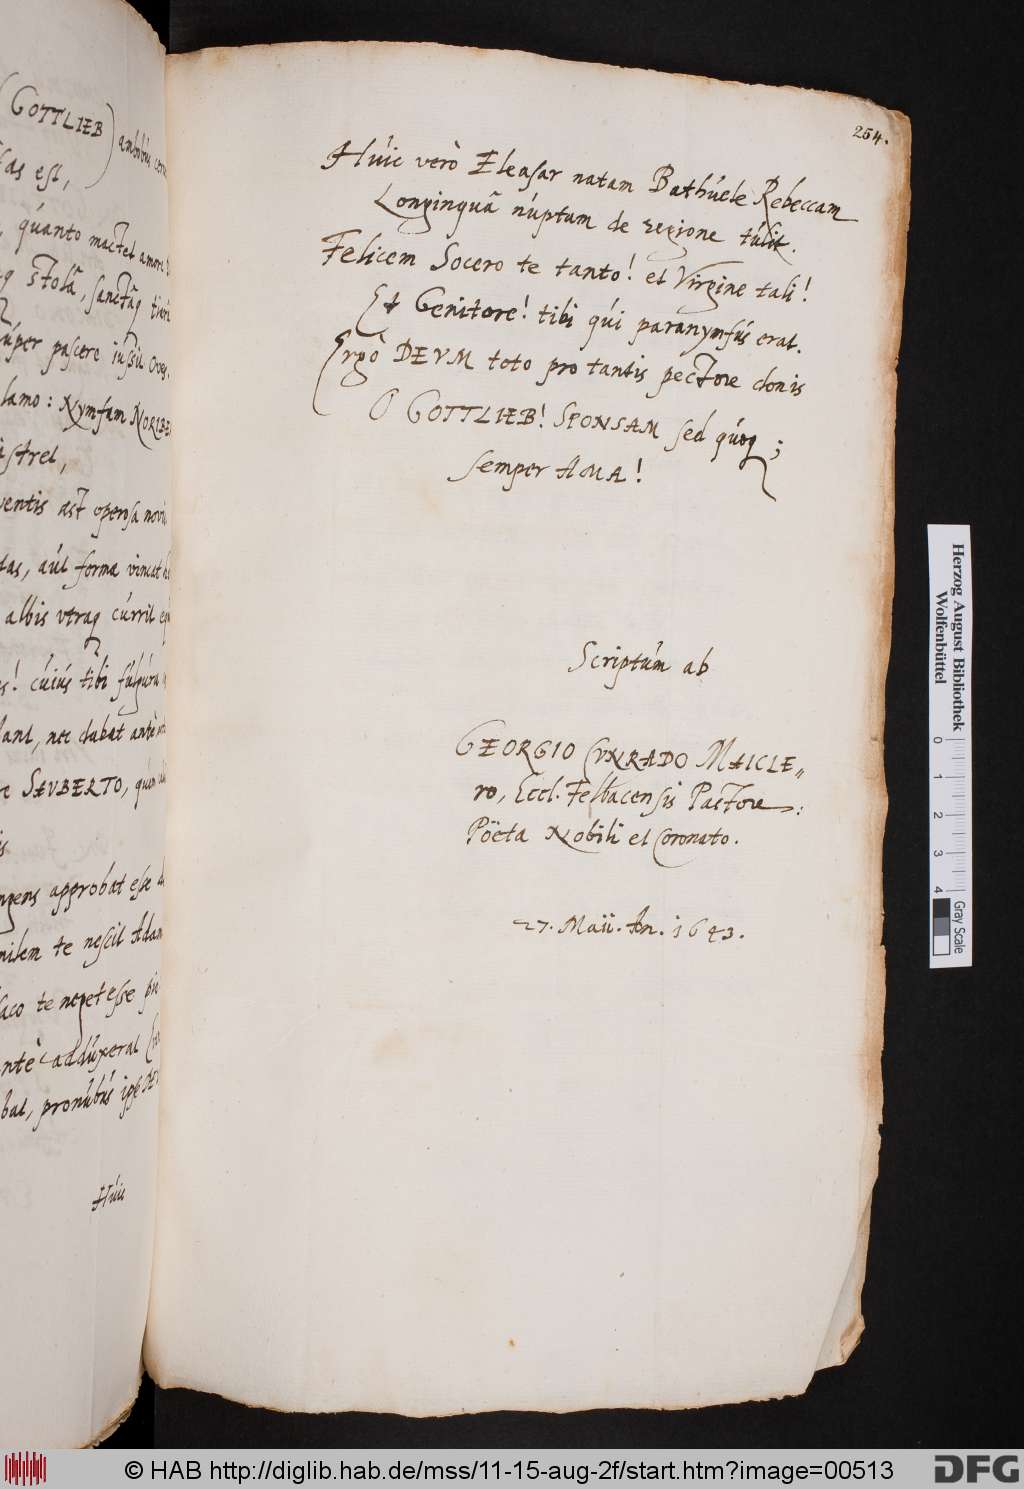 (GOTTLIEB) ambobus
as est,
quanto mactet amore
stolâ, sanctâq
super pascere iussit oves.
lamo: Nymfam NORIBE
astrel,
ventis ast operosa
tas, aut forma vincat
albis vtraq currit
! cúiús tibi fúlgura
ant, nec dabat antè
SAVBERTO,
ngens approbat esse
milem te nescit Adam
saco te neget esse
antè adduxerat
bat, pronúbús ipse
Húic
254.
Húic verò Eleasar natam Bathúele Rebeccam
Longinquâ núptum de regione túlit.
Felicem Socero te tanto! et Virgine tali!
Et Genitore! tibi qúi paranymfús erat.
Ergò DEVM toto pro tantis pectore donis
O GOTTLIEB! SPONSAM sed qúoq;
semper AMA!
Scriptúm ab
GEORGIO CVNRADO MAICLE„
ro, Eccl. Felbacensis Pastore:
Pöeta Nobili et Coronato.
27. Maii. An. 1643.
Herzog August Bibliothek
Wolfenbüttel
0 1 2 3 4
Gray Scale
© HAB http://diglib.hab.de/mss/11-15-aug-2f/start.htm?image=00513
DFG